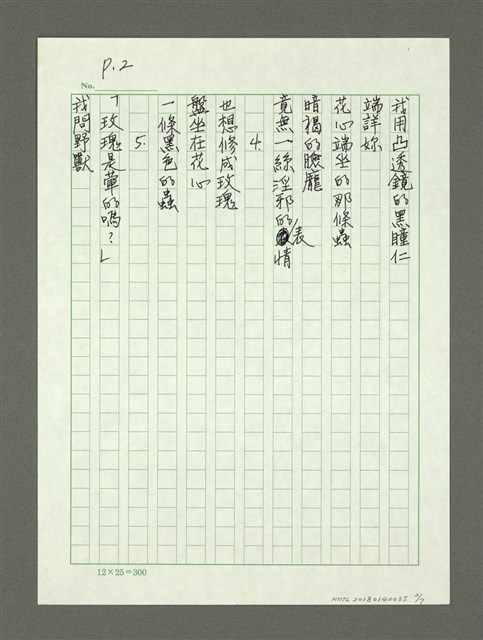 P.2
No.
我用凸透鏡的黑瞳仁
端詳妳
花心端坐的那條蟲
暗褐的臉龐
竟無一絲淫邪的表情
4.
也想修成玫瑰
盤坐在花心
一條黑色的蟲
5.
「玫瑰是葷的嗎？」
我問野獸
12×25=300
NMTL20180140035 2/7